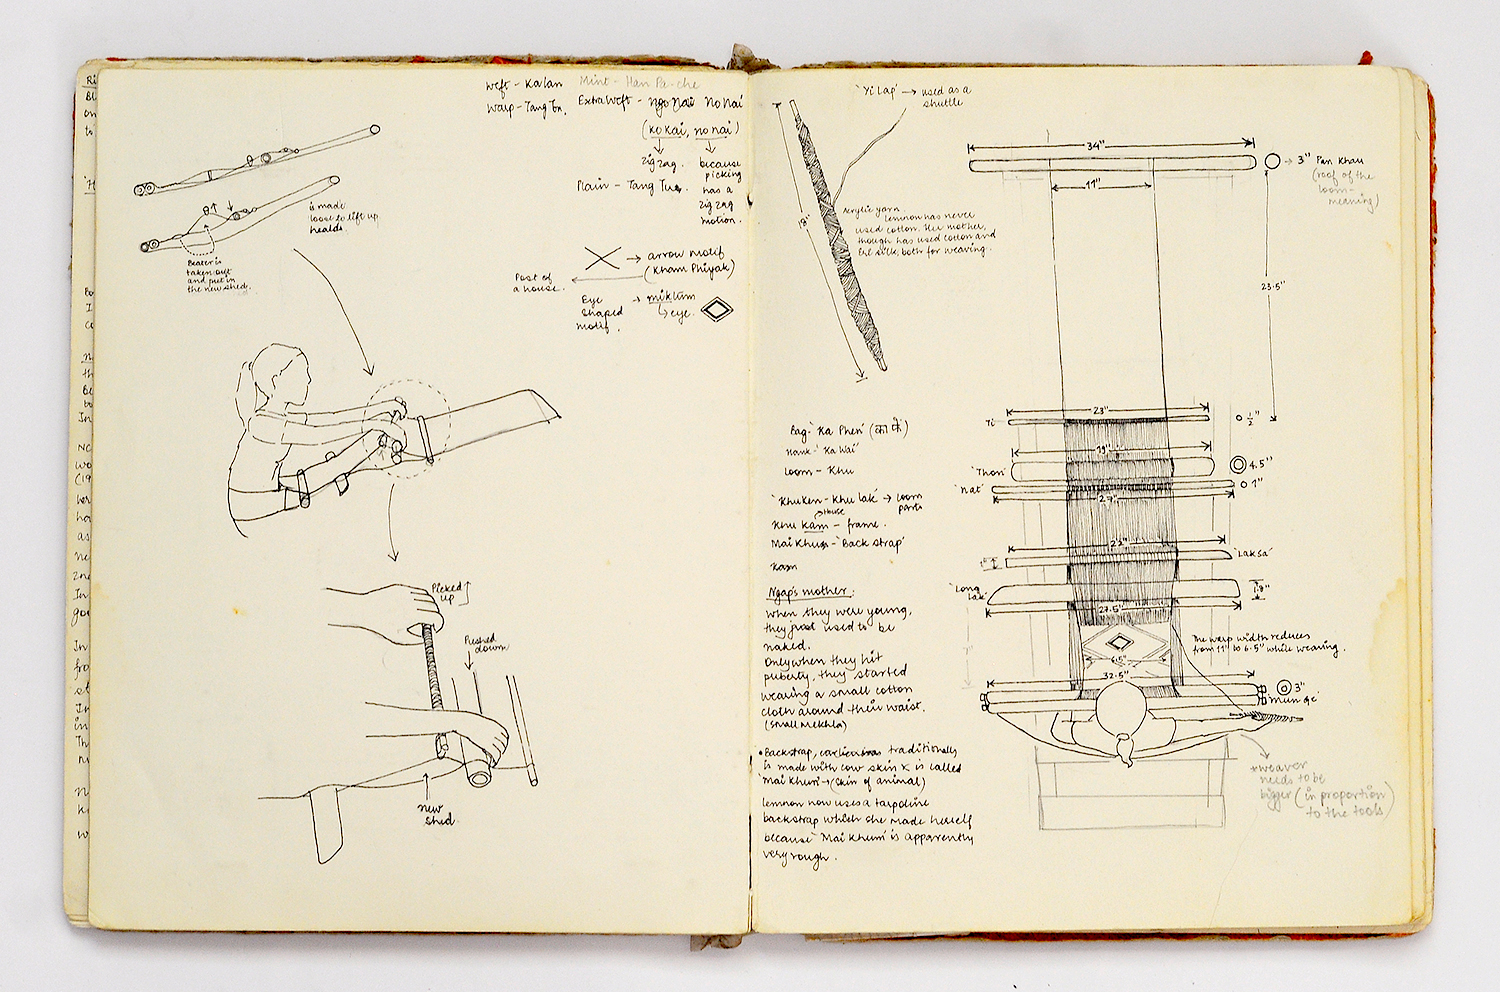 Weft - Kalan
Warp - Tang Tn.
Mint - Han Pa-che
Extra Weft - Ngo Nai No Nai
(ko kai, no nai)
zig zag.
because
picking
has a
zig zag
motion.
Plain - Tang Tua.
→ arrow motif
(Kham Phiyak)
Post of
a house.
Eye
shaped
motif.
→ miktum
↳ eye.
is made
loose to lift up
healds.
Beater is
taken out
and put in
the new shed.
Picked
up
Pushed
down
new
shed.
'Yi Lap' → used as a
shuttle
18"
Acrylic yarn
Lemnon has never
used cotton. Her mother,
though has used cotton and
Eri silk, both for weaving.
34"
3" Pan Khau
(roof of the
loom-
meaning)
11"
23.5"
Bag - 'Ka Phen'
Hank - 'Ka Wai'
Loom - Khu
'Khuken - Khu Lak' → loom
parts
House
Khu Kam - frame.
Mai Khum - 'Back strap'
Kam
Ngap's mother:
When they were young,
they just used to be
naked.
Only when they hit
puberty, they started
wearing a small cotton
cloth around their waist.
(small Mekhla)
• Backstrap, traditionally
is made with cow skin & is called
'Mai Khum' → (skin of animal)
Lemnon now uses a tarpoline
backstrap which she made herself
because 'Mai Khum' is apparently
very rough.
23"
'Ti'
1/2"
19"
'Thon'
4.5"
'Nat'
1"
27"
22"
'Laksa'
1"
'Long
Lak'
1.8"
27.5"
The warp width reduces
from 11" to 6.5" while weaving.
6.5"
7"
32.5"
3"
*weaver
needs to be
bigger (in proportion)
to the tools